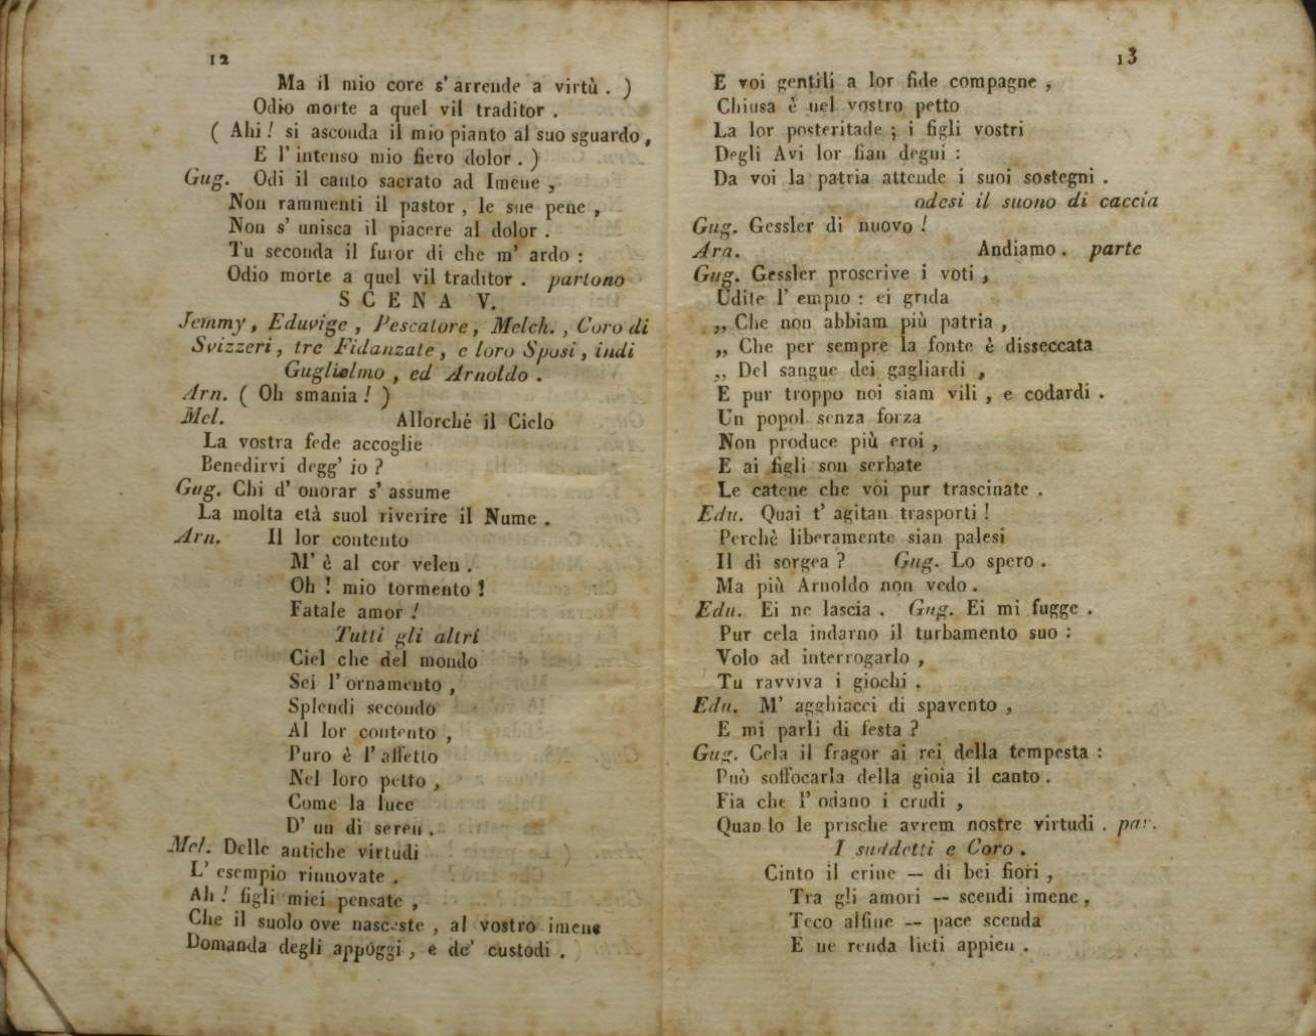 12
Ma il mio core s' arrende a virtù . )
Odio morte a quel vil traditor .
( Ahi ! si asconda il mio pianto al suo sguardo ,
E l' intenso mio fiero dolor . )
Gug. Odi il canto sacrato ad Imene ,
Non rammenti il pastor , le sue pene ,
Non s' unisca il piacere al dolor .
Tu seconda il furor di che m' ardo :
Odio morte a quel vil traditor . partono
SCENA V.
Jemmy , Eduvige , Pescatore , Melch. , Coro di
Svizzeri , tre Fidanzate , e loro Sposi , indi
Guglielmo , ed Arnoldo .
Arn. ( Oh smania ! )
Mel. Allorchè il Cielo
La vostra fede accoglie
Benedirvi degg' io ?
Gug. Chi d' onorar s' assume
La molta età suol riverire il Nume .
Arn. Il lor contento
M' è al cor velen .
Oh ! mio tormento !
Fatale amor !
Tutti gli altri
Ciel che del mondo
Sei l' ornamento ,
Splendi secondo
Al lor contento ,
Puro è l' affetto
Nel loro petto ,
Come la luce
D' un di seren .
Mel. Delle antiche virtudi
L' esempio rinnovate .
Ah ! figli miei pensate ,
Che il suolo ove nasceste , al vostro imene
Domanda degli appoggi , e de' custodi .
13
E voi gentili a lor fide compagne ,
Chiusa è nel vostro petto
La lor posteritade ; i figli vostri
Degli Avi lor fian degni :
Da voi la patria attende i suoi sostegni .
odesi il suono di caccia
Gug. Gessler di nuovo !
Ara. Andiamo . parte
Gug. Gessler proscrive i voti ,
Udite l' empio : ei grida
„ Che non abbiam più patria ,
„ Che per sempre la fonte è disseccata
„ Del sangue dei gagliardi ,
E pur troppo noi siam vili , e codardi .
Un popol senza forza
Non produce più eroi ,
E ai figli son serbate
Le catene che voi pur trascinate .
Edu. Quai t' agitan trasporti !
Perchè liberamente sian palesi
Il dì sorgea ? Gug. Lo spero .
Ma più Arnoldo non vedo .
Edu. Ei ne lascia . Gug. Ei mi fugge .
Pur cela indarno il turbamento suo :
Volo ad interrogarlo ,
Tu ravviva i giochi .
Edu. M' agghiacci di spavento ,
E mi parli di festa ?
Gug. Cela il fragor ai rei della tempesta :
Può soffocarla della gioia il canto .
Fia che l' odano i crudi ,
Quando le prische avrem nostre virtudi . par.
I suddetti e Coro .
Cinto il crine — di bei fiori ,
Tra gli amori — scendi imene ,
Teco alfine — pace scenda
E ne renda lieti appien .